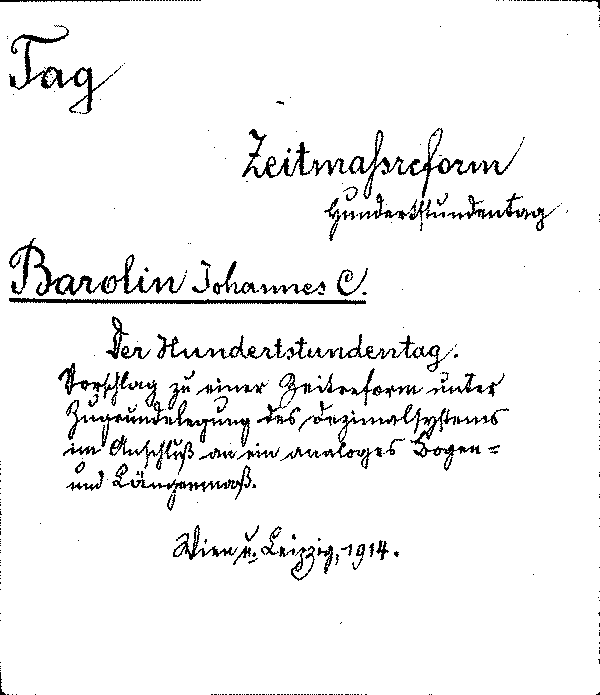 Tag
Zeitmaßreform
Hundertstundentag
Barolin Johannes C.
Der Hundertstundentag.
Vorschlag zu einer Zeitreform unter
Zugrundelegung des Dezimalsystems
im Anschluß an ein analoges Bogen-
und Längenmaß.
Wien u. Leipzig, 1914.